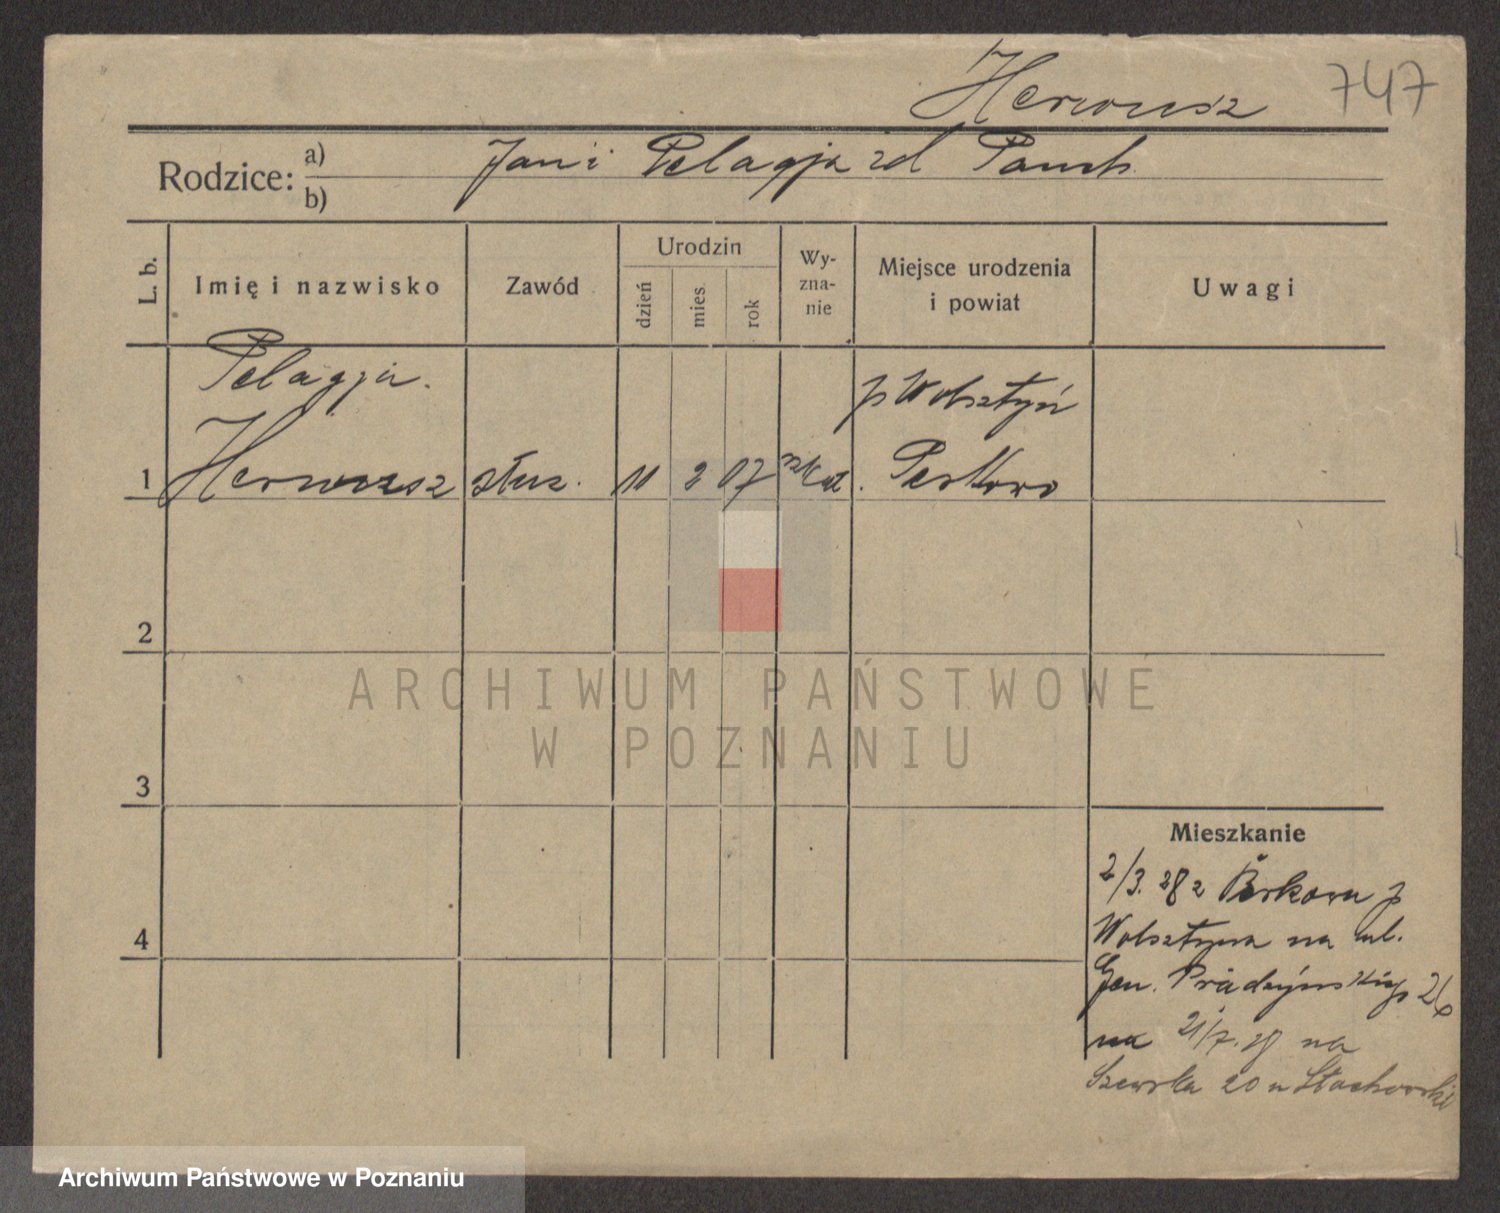 Herwusz 747
Rodzice: a) Jan i Pelagja zd
b)
L. b.
Imię i nazwisko
Zawód
Urodzin
dzień
mies.
rok
Wy-
zna-
nie
Miejsce urodzenia
i powiat
Uwagi
Pelagja.
p Wolsztyń
1 Herwusz służ. 11 2 07 rzkat.
2
3
4
Mieszkanie
2/3. 28 z p
Wolsztyna na ul.
Gen. Prądzyńskiego 26
na 21/7. 28 na
Szewska 20 u Stachowski
ARCHIWUM PAŃSTWOWE
W POZNANIU
Archiwum Państwowe w Poznaniu